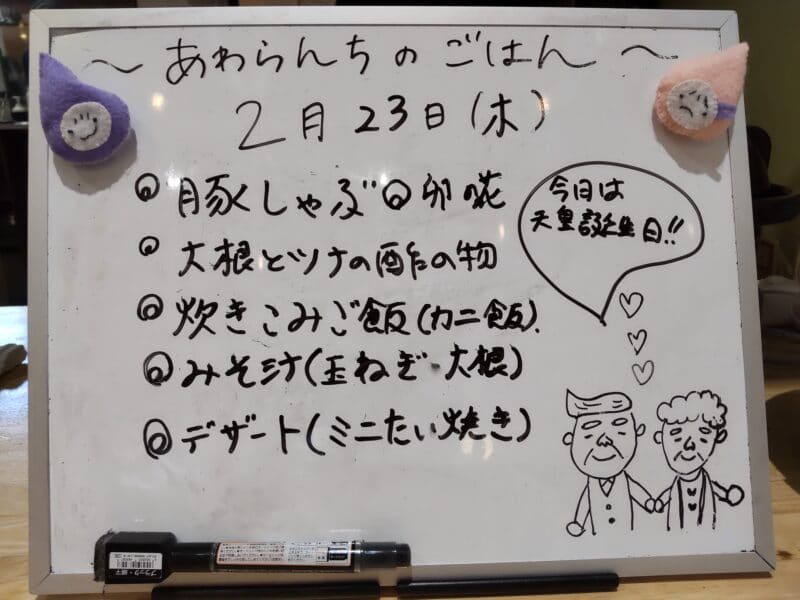 ～あわらんちのごはん～
2月23日(木)
◎豚しゃぶ◎卯の花
◎大根とツナの酢の物
◎炊きこみご飯(カニ飯)
◎みそ汁(玉ねぎ・大根)
◎デザート(ミニたい焼き)
今日は
天皇誕生日!!